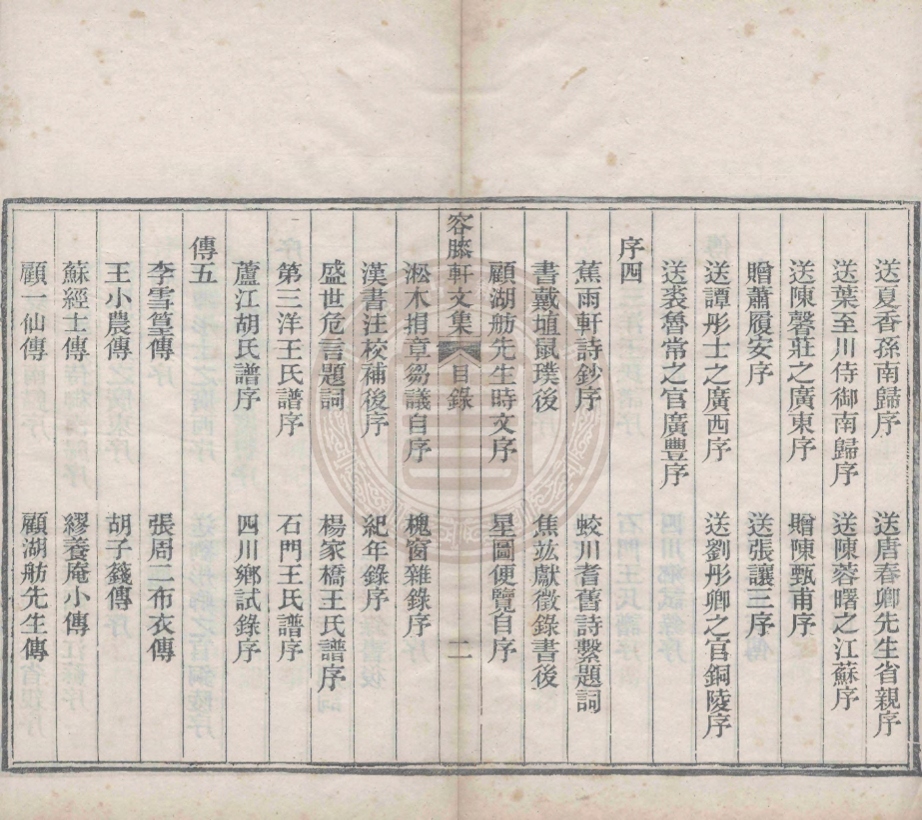 送夏香孫南歸序　送唐春卿先生省親序
送葉至川侍御南歸序　送陳蓉曙之江蘇序
送陳馨莊之廣東序　贈陳甄甫序
贈蕭履安序　送張讓三序
送譚彤士之廣西序　送劉彤卿之官銅陵序
送裘魯常之官廣豐序
序四
蕉雨軒詩鈔序　蛟川耆舊詩繫題詞
書戴埴鼠璞後　焦竑獻徵錄書後
顧湖舫先生時文序　星圖便覽自序
容膝軒文集　目錄　二
淞木捐章芻議自序　槐窗雜錄序
漢書注校補後序　紀年錄序
盛世危言題詞　楊家橋王氏譜序
第三洋王氏譜序　石門王氏譜序
蘆江胡氏譜序　四川鄉試錄序
傳五
李雪篁傳　張周二布衣傳
王小農傳　胡子籛傳
蘇經士傳　繆養庵小傳
顧一仙傳　顧湖舫先生傳